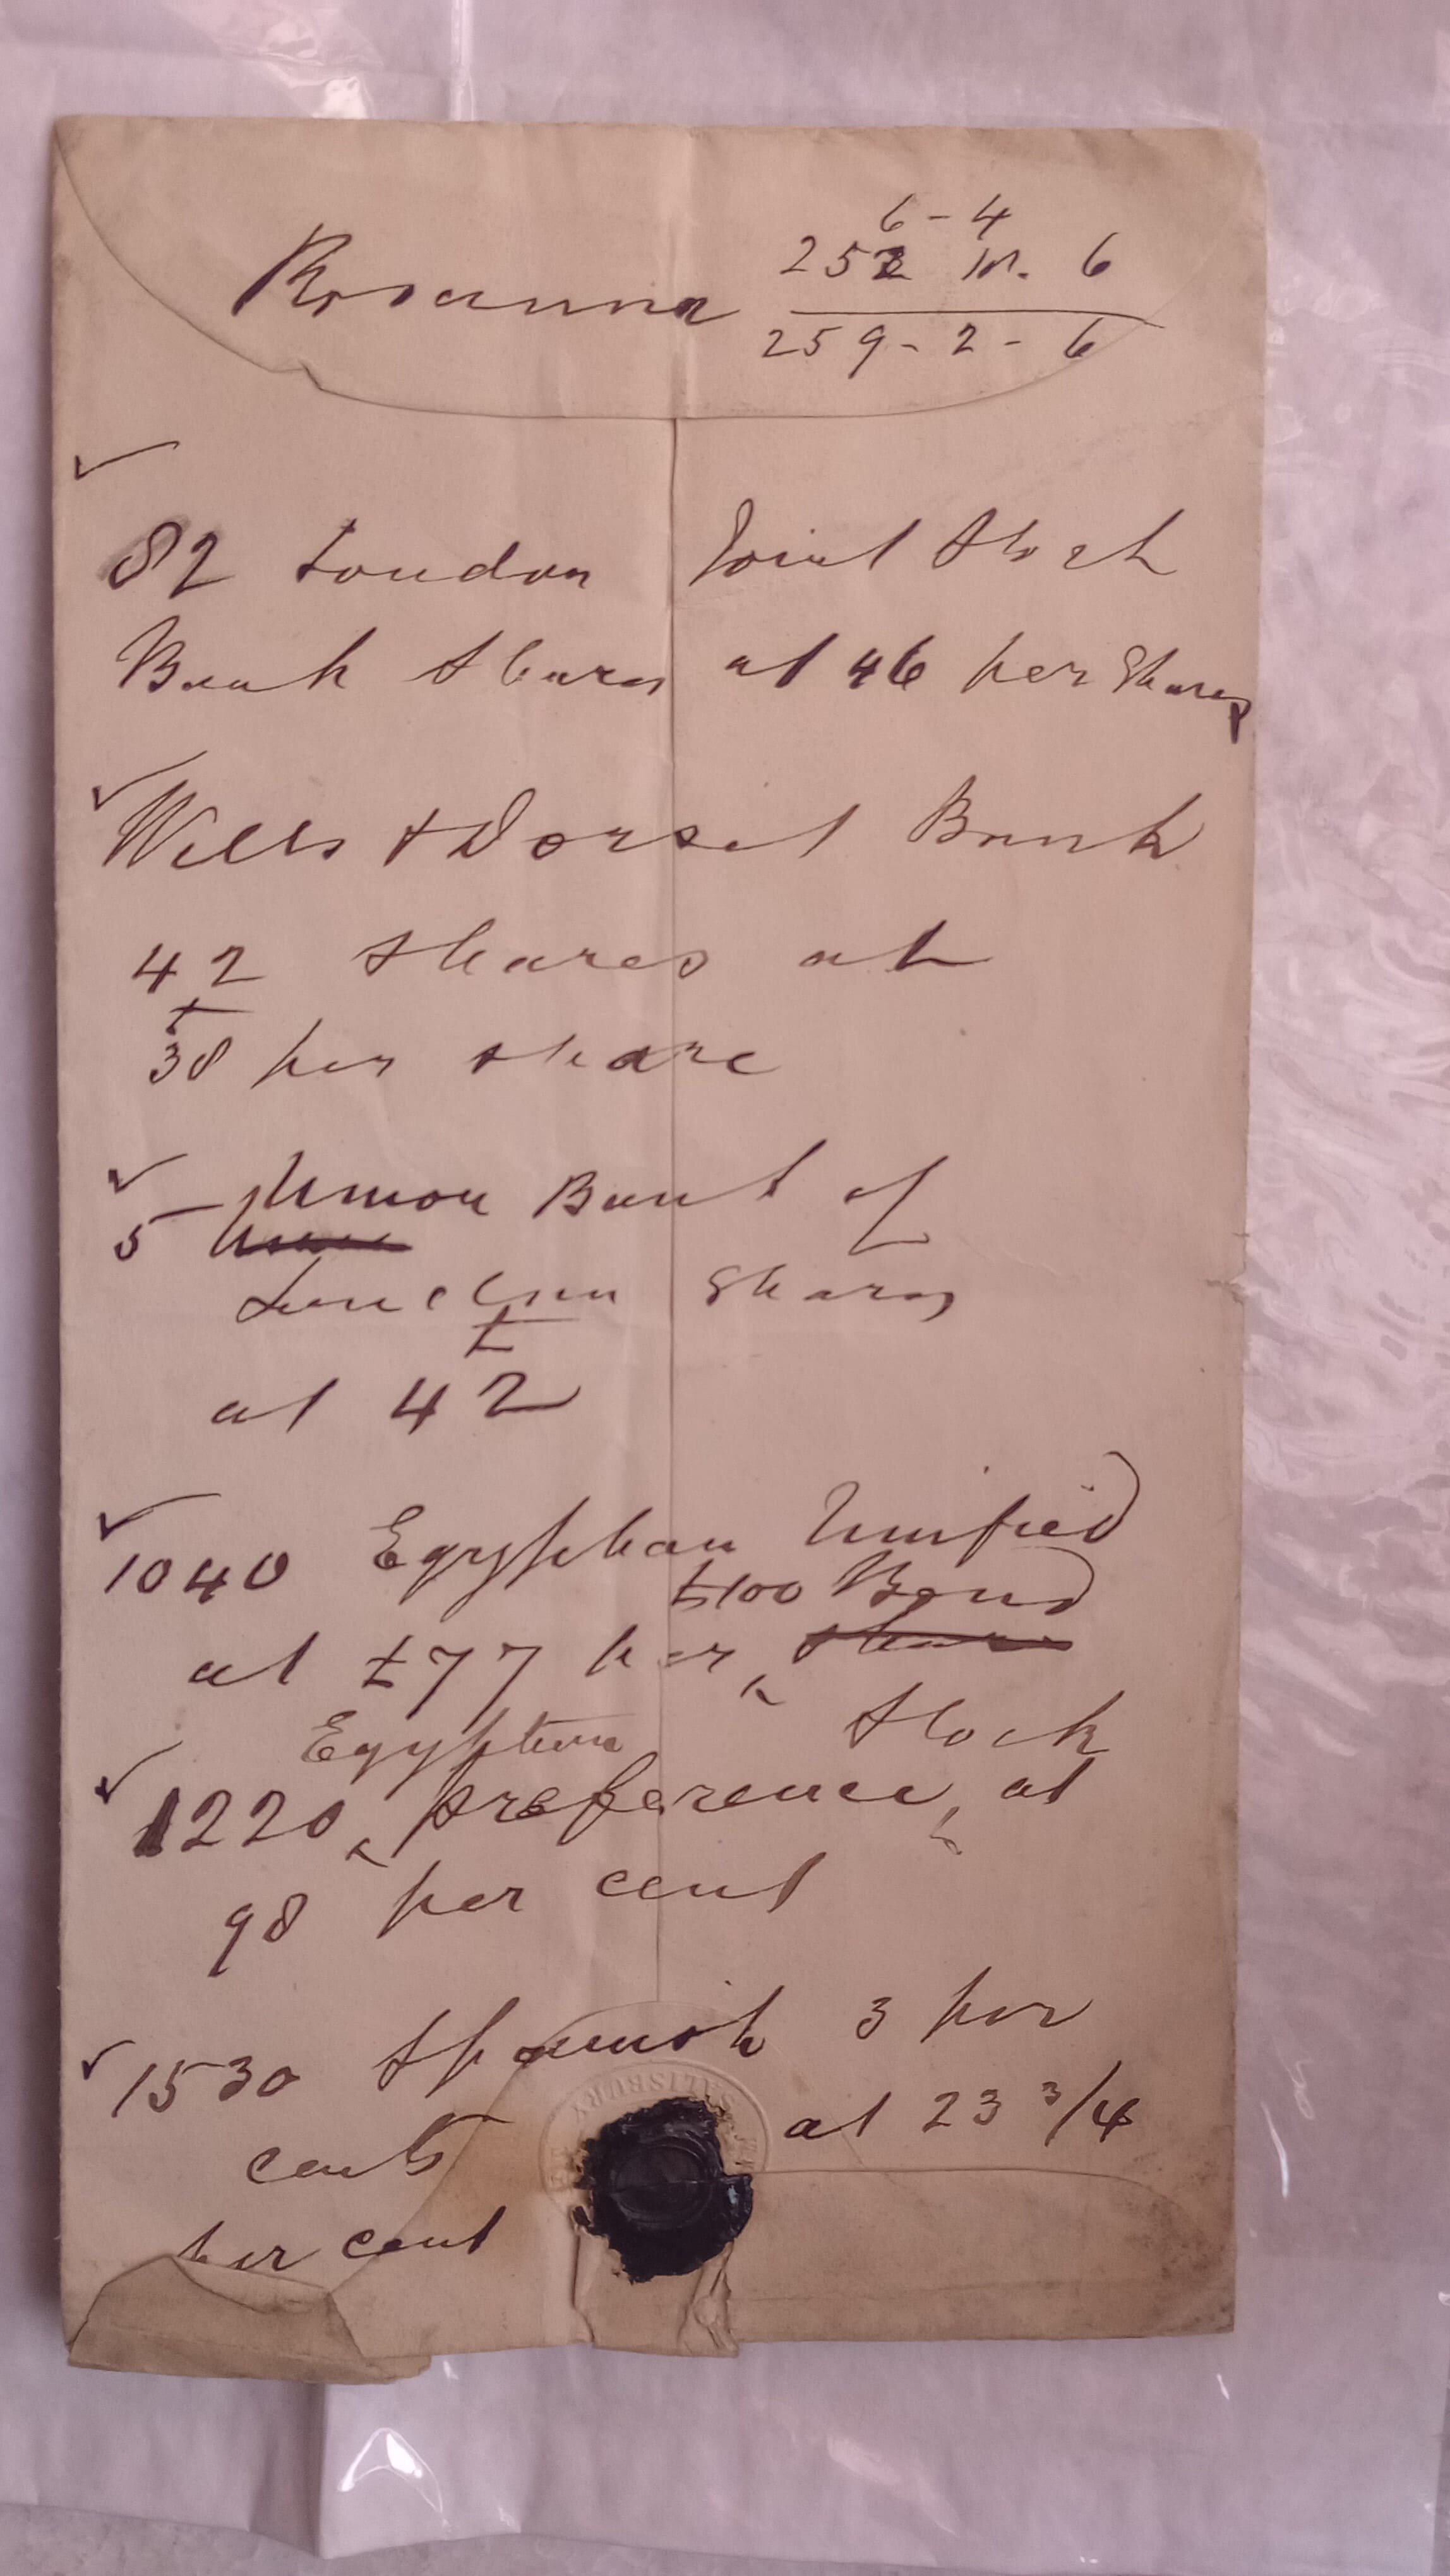 6 - 4
Rosanna 252 18. 6
259 - 2 - 6
✓
82 London Joint Stock
Bank Shares at 46 per Share
✓
Wilts & Dorset Bank
42 Shares at
£
38 per share
✓
5 Union Bank of
London Shares
£
at 42
✓
1040 Egyptian Unified
£100 Bond
at £77 per ‸ share
Egyptian Stock
✓
1220 ‸ preference ‸ at
98 per cent
✓ 1530 Spanish 3 per
SALISBURY
cents at 23 3/4
per cent